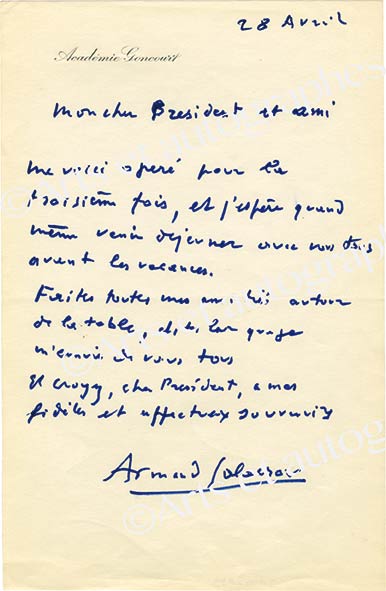 28 Avril
Académie Goncourt
Mon cher President et ami
me voici opéré pour la
troisième fois, et j'espère quand
même venir déjeuner avec vous tous
avant les vacances.
Faites toutes mes amitiés autour
de la table, et dites leur que je
m'ennuie de vous tous
Et croyez, cher Président, a mes
fidèles et affectueux souvenirs
Armand Salacrou